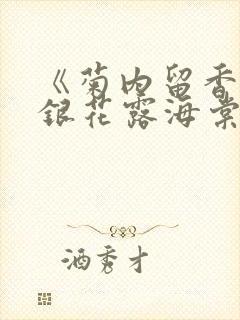 《菊内留香
银花露海棠
酒秀才